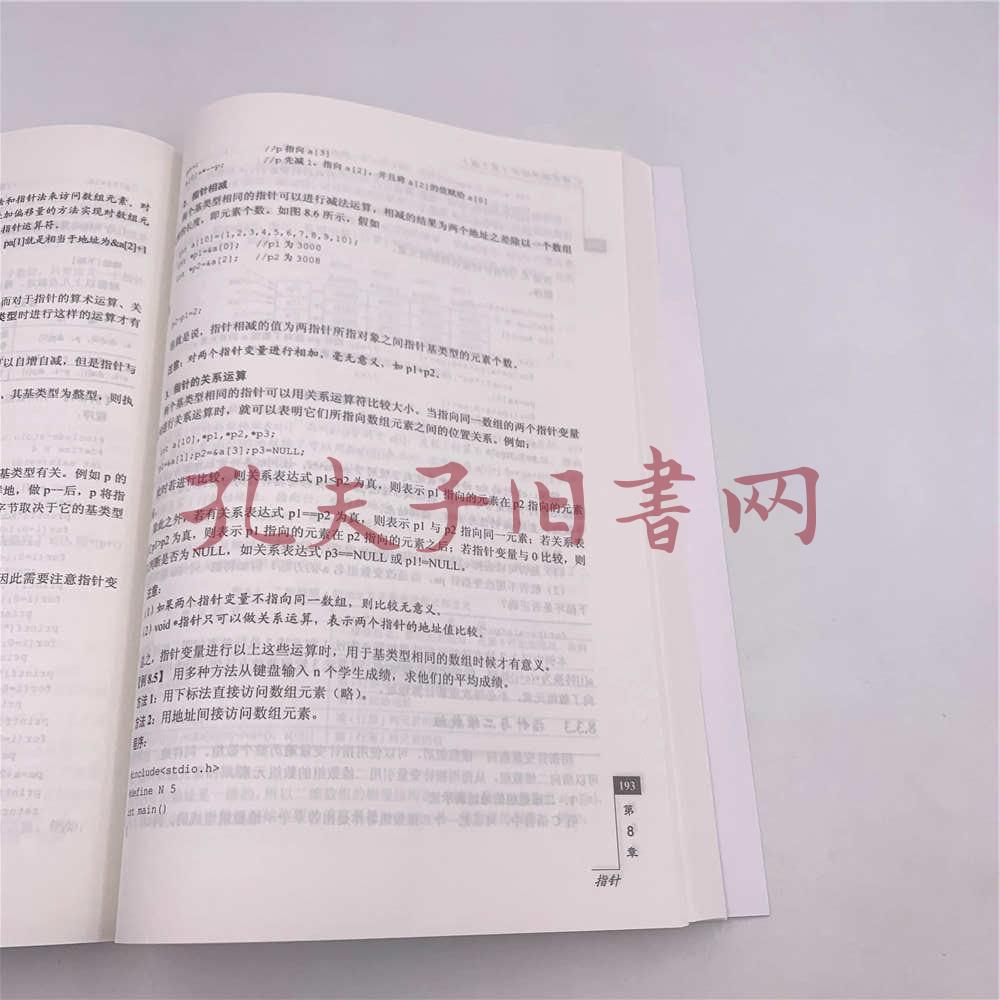 法和指针法来访问数组元素。对
加偏移量的方法实现对数组元
指针运算符。
pa[1]就是相当于地址为&a[2]+1
而对于指针的算术运算、关
类型时进行这样的运算才有
可以自增自减，但是指针与
，其基类型为整型，则执
基类型有关。例如 p 的
样地，做 p--后，p 将指
字节取决于它的基类型
因此需要注意指针变
//p 指向 a[3]
//p 先减 1，指向 a[2]，并且将 a[2]的值赋给 a[0]
指针相减
个基类型相同的指针可以进行减法运算，相减的结果为两个地址之差除以一个数组
长度，即元素个数。如图 8.6 所示，假如
int a[10]={1,2,3,4,5,6,7,8,9,10};
int *p1=&a[0]; //p1 为 3000
int *p2=&a[2]; //p2 为 3008
p2-p1=2;
就是说，指针相减的值为两指针所指对象之间指针基类型的元素个数。
注意：对两个指针变量进行相加，毫无意义，如 p1+p2。
3. 指针的关系运算
两个基类型相同的指针可以用关系运算符比较大小。当指向同一数组的两个指针变量
进行关系运算时，就可以表明它们所指向数组元素之间的位置关系。例如：
int a[10],*p1,*p2,*p3;
p1=&a[1];p2=&a[3];p3=NULL;
此时若进行比较，则关系表达式 p1<p2 为真，则表示 p1 指向的元素在 p2 指向的元素
除此之外，若有关系表达式 p1==p2 为真，则表示 p1 与 p2 指向同一元素；若关系表
p1>p2 为真，则表示 p1 指向的元素在 p2 指向的元素之后；若指针变量与 0 比较，则
判断是否为 NULL，如关系表达式 p3==NULL 或 p1!=NULL。
注意：
(1) 如果两个指针变量不指向同一数组，则比较无意义。
(2) void *指针只可以做关系运算，表示两个指针的地址值比较。
总之，指针变量进行以上这些运算时，用于基类型相同的数组时候才有意义。
【例 8.5】 用多种方法从键盘输入 n 个学生成绩，求他们的平均成绩。
方法 1：用下标法直接访问数组元素（略）。
方法 2：用地址间接访问数组元素。
程序：
#include<stdio.h>
#define N 5
int main()
{
193
第
8
章
指针
孔夫子旧书网